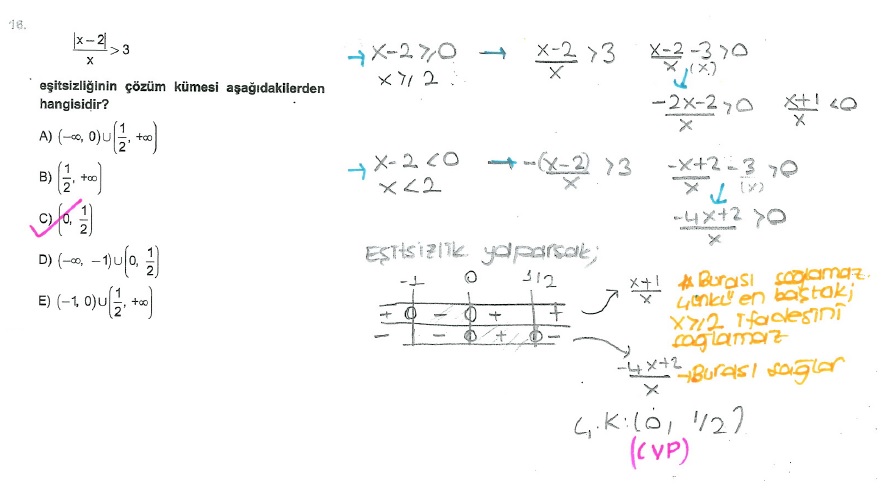 18.
|x-2|/x > 3
eşitsizliğinin çözüm kümesi aşağıdakilerden
hangisidir?
A) (-∞, 0)∪(1/2, +∞)
B) (1/2, +∞)
C) (0, 1/2)
D) (-∞, -1)∪(0, 1/2)
E) (-1, 0)∪(1/2, +∞)
→ x-2 ≥ 0 → (x-2)/x > 3 (x-2)/x - 3 > 0
(x)
x ≥ 2
(-2x-2)/x > 0 (x+1)/x < 0
→ x-2 < 0 → -(x-2)/x > 3 (-x+2)/x - 3 > 0
(x)
x < 2
(-4x+2)/x > 0
Eşitsizlik yaparsak;
-1 0 1/2
+ 0 - 0 + +
- - 0 + 0 -
(x+1)/x
* Burası sağlamaz.
çünkü en baştaki
x ≥ 2 ifadesini
sağlamaz
(-4x+2)/x → Burası sağlar
Ç.K: (0, 1/2)
(CVP)